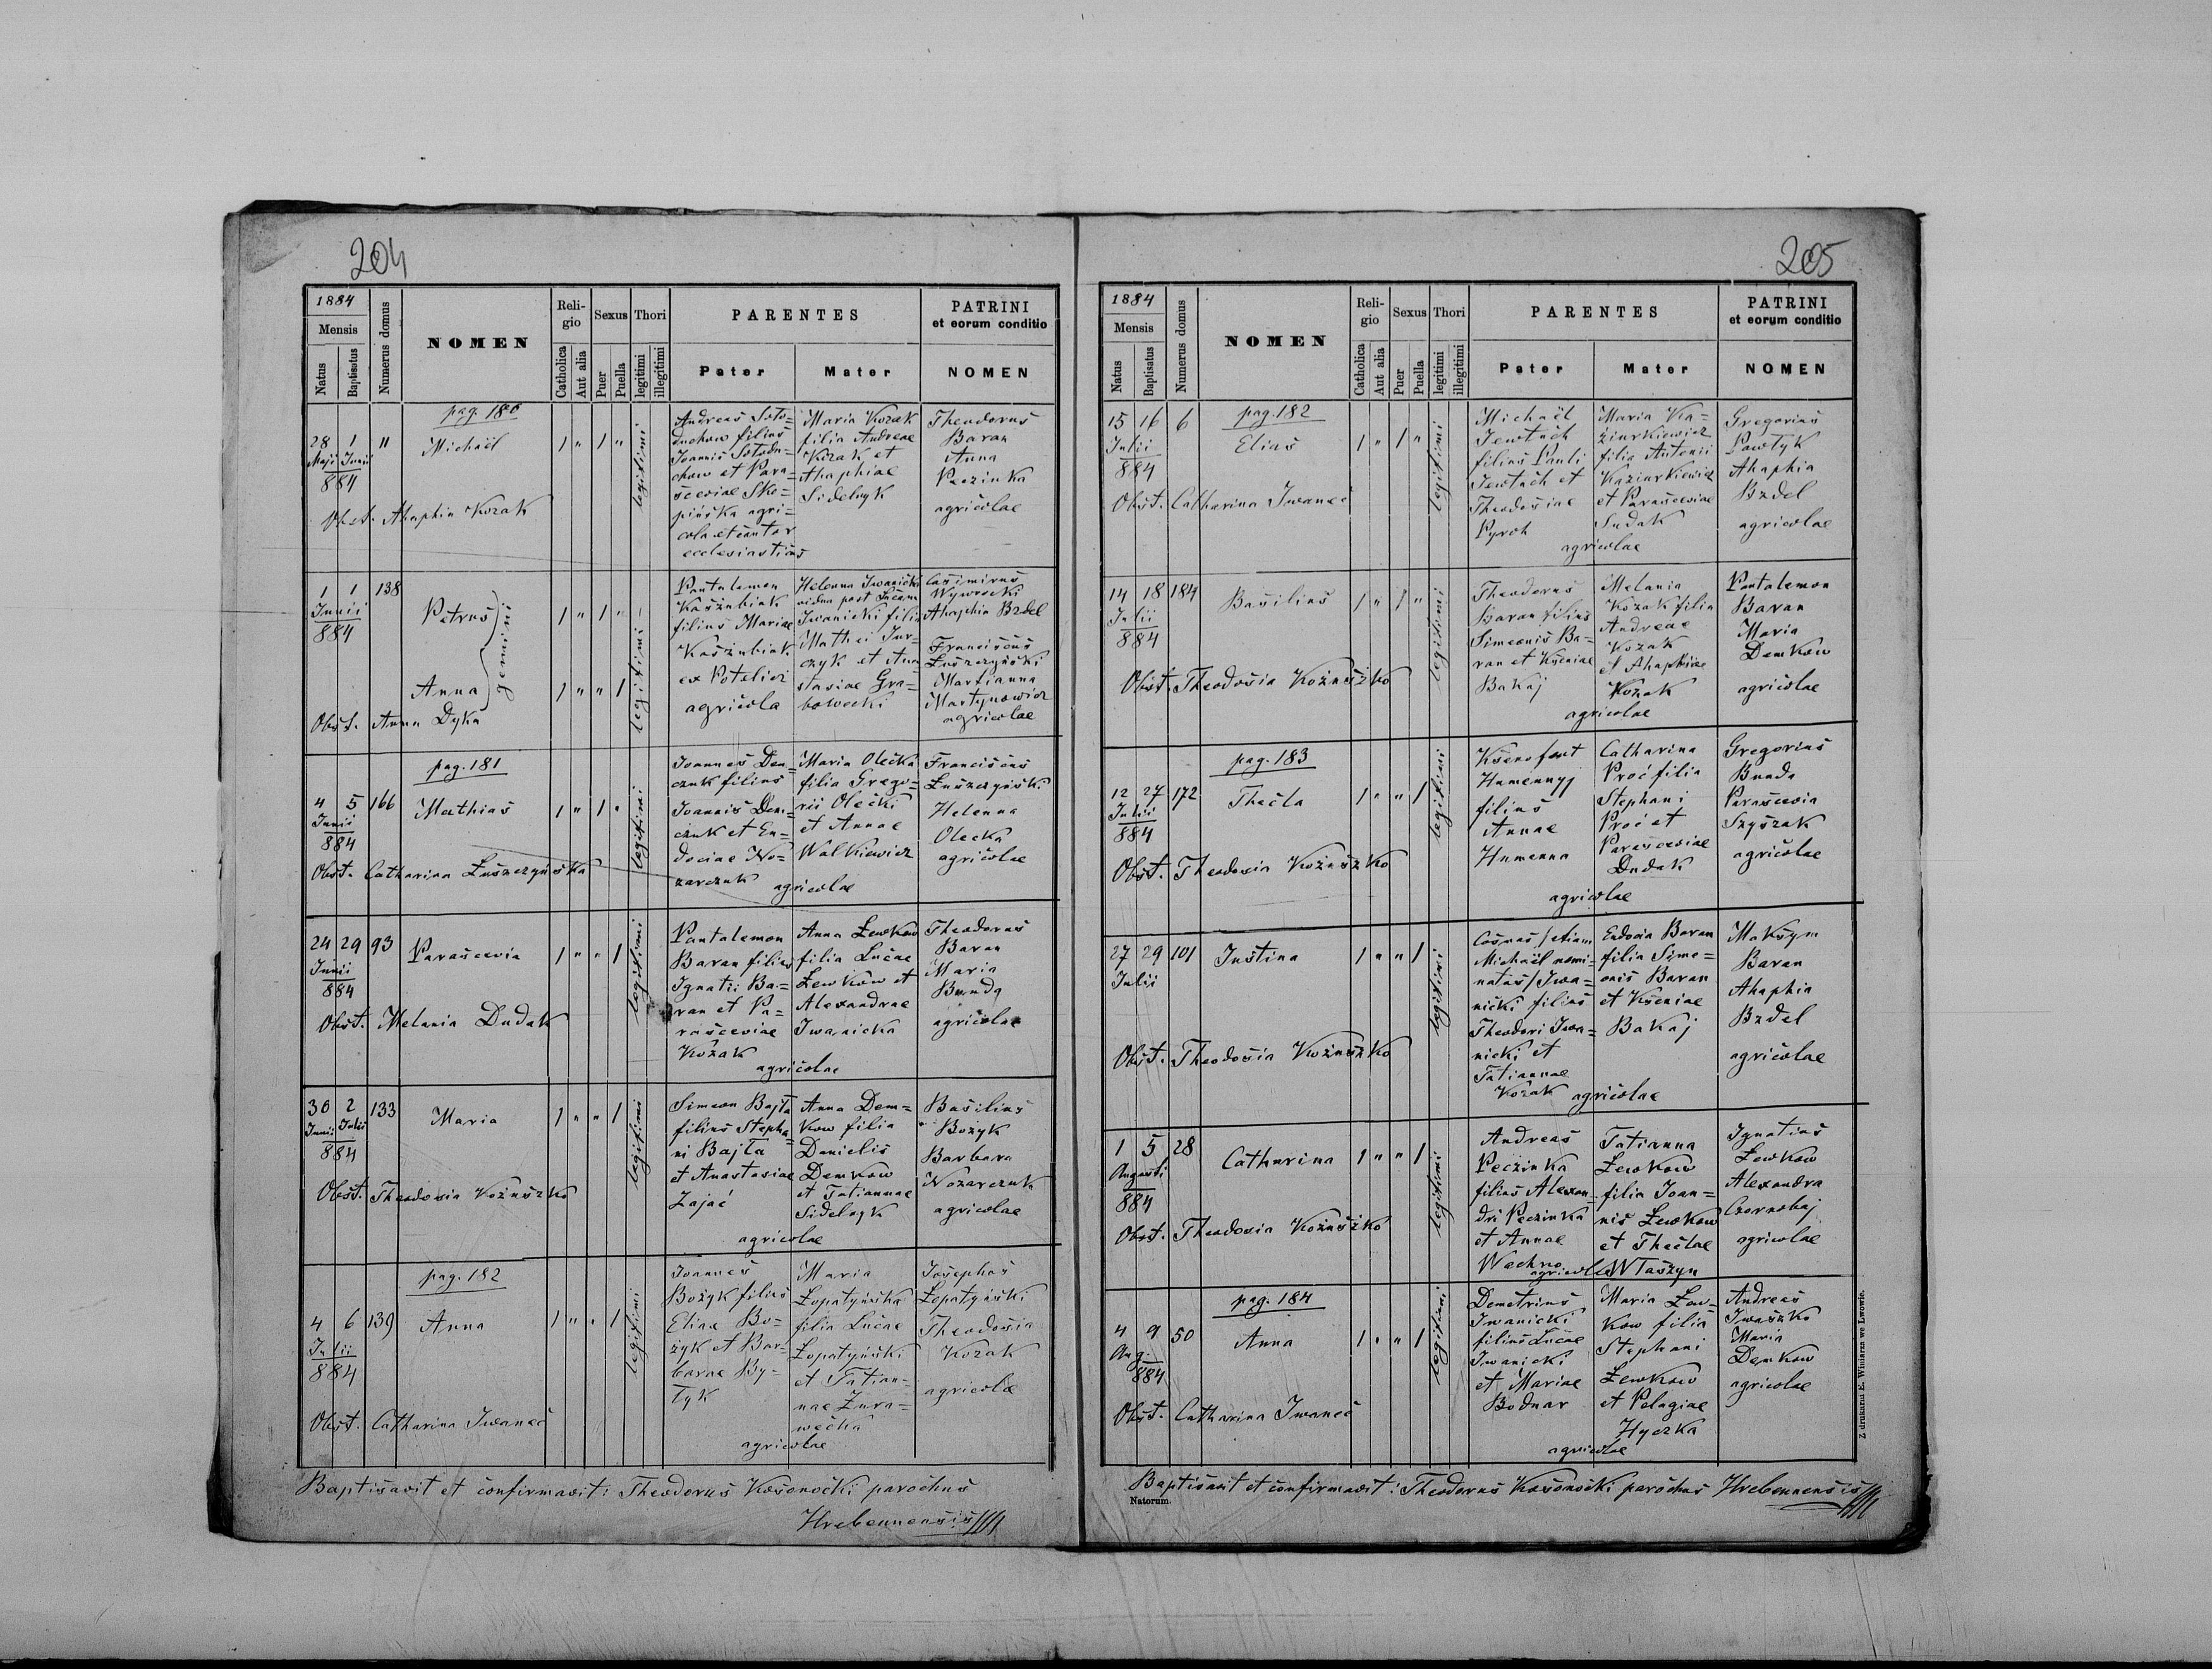 204
1884
Mensis
Natus
Baptisatus
Numerus domus
NOMEN
Religio
Catholica
Aut alia
Sexus
Puer
Puella
Thori
legitimi
illegitimi
PARENTES
Pater
Mater
PATRINI
et eorum conditio
NOMEN
pag. 180
28 Maji 1 Junii
884
11
Michaël
1 " 1 "
legitimi
Andreas Soto=
duchow filius
Joannis Sotodu=
chow et Para=
sceviae Sko=
pińska agri=
cola et cantor
ecclesiasticus
Maria Kozak
filia Andreae
Kozak et
Ahaphiae
Sidelnyk
Theodorus
Baran
Anna
Peczinka
agricolae
Obst. Ahaphia Kozak
1 1
Junii
884
138
Petrus
Anna
gemini
1 " 1 "
1 " " 1
legitimi
Pantalemon
Kaszubiak
filius Mariae
Kaszubiak
ex Potelicz
agricola
Helenna Iwanicki
vidua post Lucam
Iwanicki filia
Mathei Jur=
czyk et Ana
stasiae Gra=
bowecki
Casimirus
Wywrocki
Ahaphia Bzdel
Franciscus
Łuszczyński
Martianna
Martynowicz
agricolae
Obst. Anna Dyka
pag. 181
4 5
Junii
884
166
Mathias
1 " 1 "
legitimi
Joannes Dem=
czuk filius
Joannis Dem=
czuk et Eu=
dociae No=
zarczuk
Maria Olecka
filia Grego=
rii Olecki
et Annae
Walkiewicz
agricolae
Franciscus
Łuszczyński
Helenna
Olecka
agricolae
Obst. Catharina Łuszczyńska
24 29
Junii
884
93
Parascevia
1 " " 1
legitimi
Pantalemon
Baran filius
Ignatii Ba=
ran et Pa=
rasceviae
Kozak
Anna Lewkow
filia Lucae
Lewkow et
Alexandrae
Iwanicka
agricolae
Theodorus
Baran
Maria
Bunda
agricolae
Obst. Melania Dudak
30 Junii 2 Julii
884
133
Maria
1 " " 1
legitimi
Simeon Bajta
filius Stepha=
ni Bajta
et Anastasiae
Zając
Anna Dem=
kow filia
Danielis
Demkow
et Tatiannae
Sidelnyk
agricolae
Basilius
Bożyk
Barbara
Nozarczuk
agricolae
Obst. Theodosia Kożuszko
pag. 182
4 6
Julii
884
139
Anna
1 " " 1
legitimi
Joannes
Bożyk filius
Eliae Bo=
żyk et Bar=
barae By=
tyk
Maria
Łopatyńska
filia Lucae
Łopatyński
et Tatian=
nae Żura=
wecka
agricolae
Josephus
Łopatyński
Theodosia
Kozak
agricolae
Obst. Catharina Iwanec
Baptisavit et confirmavit: Theodorus Kosonocki parochus
Hrebennensis
205
1884
Mensis
Natus
Baptisatus
Numerus domus
NOMEN
Religio
Catholica
Aut alia
Sexus
Puer
Puella
Thori
legitimi
illegitimi
PARENTES
Pater
Mater
PATRINI
et eorum conditio
NOMEN
pag. 182
15 16
Julii
884
6
Elias
1 " 1 "
legitimi
Michaël
Jewtuch
filius Pauli
Jewtuch et
Theodosiae
Pyroh
Maria Ka=
ziurkiewicz
filia Antonii
Kaziurkiewicz
et Parasceviae
Sudak
agricolae
Gregorius
Pawtyk
Ahaphia
Bzdel
agricolae
Obst. Catharina Iwanec
14 18
Julii
884
184
Basilius
1 " 1 "
legitimi
Theodorus
Baran filius
Simeonis Ba=
ran et Kseniae
Bakaj
Melania
Kozak filia
Andreae
Kozak
et Ahaphiae
Kozak
agricolae
Pantalemon
Baran
Maria
Demkow
agricolae
Obst. Theodosia Kożuszko
pag. 183
12 27
Julii
884
172
Thecla
1 " " 1
legitimi
Ksenofont
Humennyj
filius
Annae
Humenna
Catharina
Proć filia
Stephani
Proć et
Parasceviae
Dudak
agricolae
Gregorius
Bunda
Parascevia
Szyszak
agricolae
Obst. Theodosia Kożuszko
27 29
Julii
101
Justina
1 " " 1
legitimi
Cosmas /etiam
Michaël nomi=
natus/ Iwa=
nicki filius
Theodori Iwa=
nicki et
Tatiannae
Kozak
Eudocia Baran
filia Sime=
onis Baran
et Kseniae
Bakaj
agricolae
Maksym
Baran
Ahaphia
Bzdel
agricolae
Obst. Theodosia Kożuszko
1 5
Augusti
884
28
Catharina
1 " " 1
legitimi
Andreas
Peczinka
filius Alexan=
dri Peczinka
et Annae
Wachno
Tatianna
Lewkow
filia Joan=
nis Lewkow
et Theclae
Wtaszyn
agricolae
Ignatius
Lewkow
Alexandra
Czornobaj
agricolae
Obst. Theodosia Kożuszko
pag. 184
4 9
Aug.
884
50
Anna
1 " " 1
legitimi
Demetrius
Iwanicki
filius Lucae
Iwanicki
et Mariae
Bodnar
Maria Lew=
kow filia
Stephani
Lewkow
et Pelagiae
Hyczka
agricolae
Andreas
Iwaszko
Maria
Demkow
agricolae
Obst. Catharina Iwanec
Baptisavit et confirmavit: Theodorus Kosonocki parochus Hrebennensis
Natorum.
Z drukarni E. Winiarza we Lwowie.